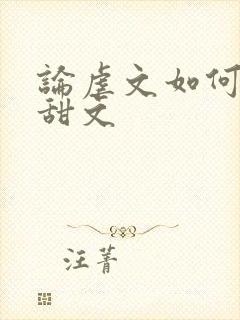 論虐文如何
甜文
汪菁